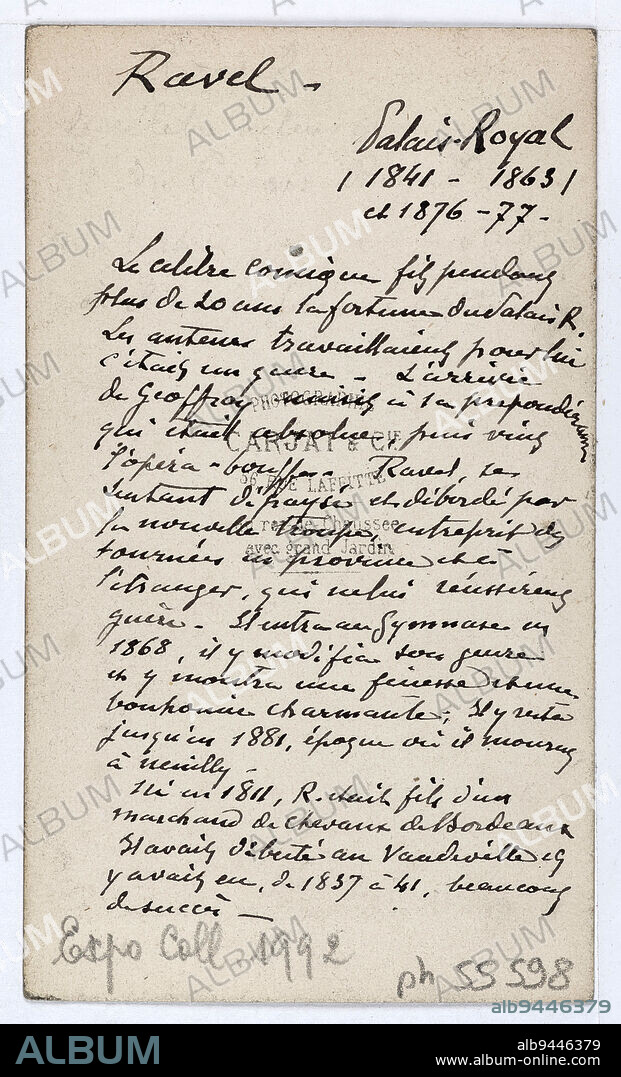 Ravel -
Palais-Royal
( 1841 - 1863 )
et 1876 - 77 -
Le célèbre comique fit pendant
plus de 20 ans la fortune du Palais R.
Les auteurs travaillaient pour lui
c'était un genre - L'arrivée
de Geoffroy nuisit à sa prépondérance
PHOTOGRAPHIE
qui était absolue, puis vint
CARJAT & Cie
l'opéra-bouffe. Ravel, se
56 RUE LAFFITTE
sentant dépaysé et débordé par
la nouvelle troupe, entreprit des
rez de Chaussée
tournées en province et à
avec grand Jardin
l'étranger, qui ne lui réussirent
guère - Il entra au Gymnase en
1868, il y modifia son genre
et y montra une finesse et une
bonhomie charmante; Il y resta
jusqu'en 1881, époque où il mourut
à Neuilly -
Né en 1811, R. était fils d'un
marchand de chevaux de Bordeaux
Il avait débuté au Vaudeville et
y avait eu, de 1837 à 41, beaucoup
de succès -
Expo Coll 1992
ph 55 598
alb9446379
ALBUM
alb9446379
www.album-online.com